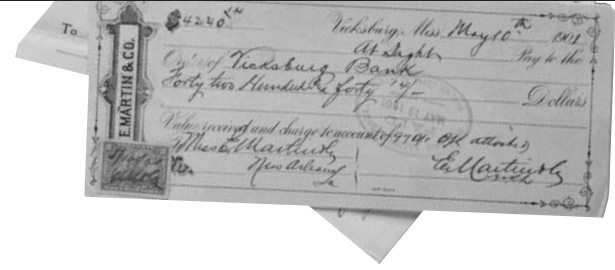 To
E. MARTIN & CO.
$4240
Vicksburg, Miss. May 10th 1901
At Sight Pay to the
Order of Vicksburg Bank
Forty two Hundred & forty Dollars
Value received and charge to account of 97 B/C B/L attached
Messrs E Martin & Co
New Orleans
La
E Martin & Co